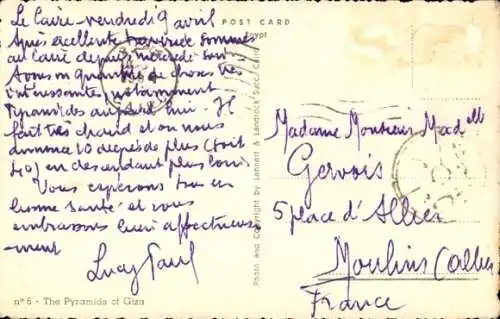 Le Caire - vendredi 9 avril
POST CARD
Après excellente traversée sommes
au Caire depuis mercredi soir
Avons vu quantité de choses très
intéressantes, notamment
Pyramides aujourd'hui. Il
fait très chaud et on nous
annonce 10 degrés de plus (soit
40) en descendant plus loin.
Vous espérons tous en
bonne santé et vous
embrassons bien affectueuse
ment
Lucy Paul
nº 6 - The Pyramids of Giza
Photo and Copyright by Lehnert & Landrock Succ. Cairo
Egypt
Madame Monsieur Madelle
Gervois
5 place d'Allier
Moulins (Allier)
France